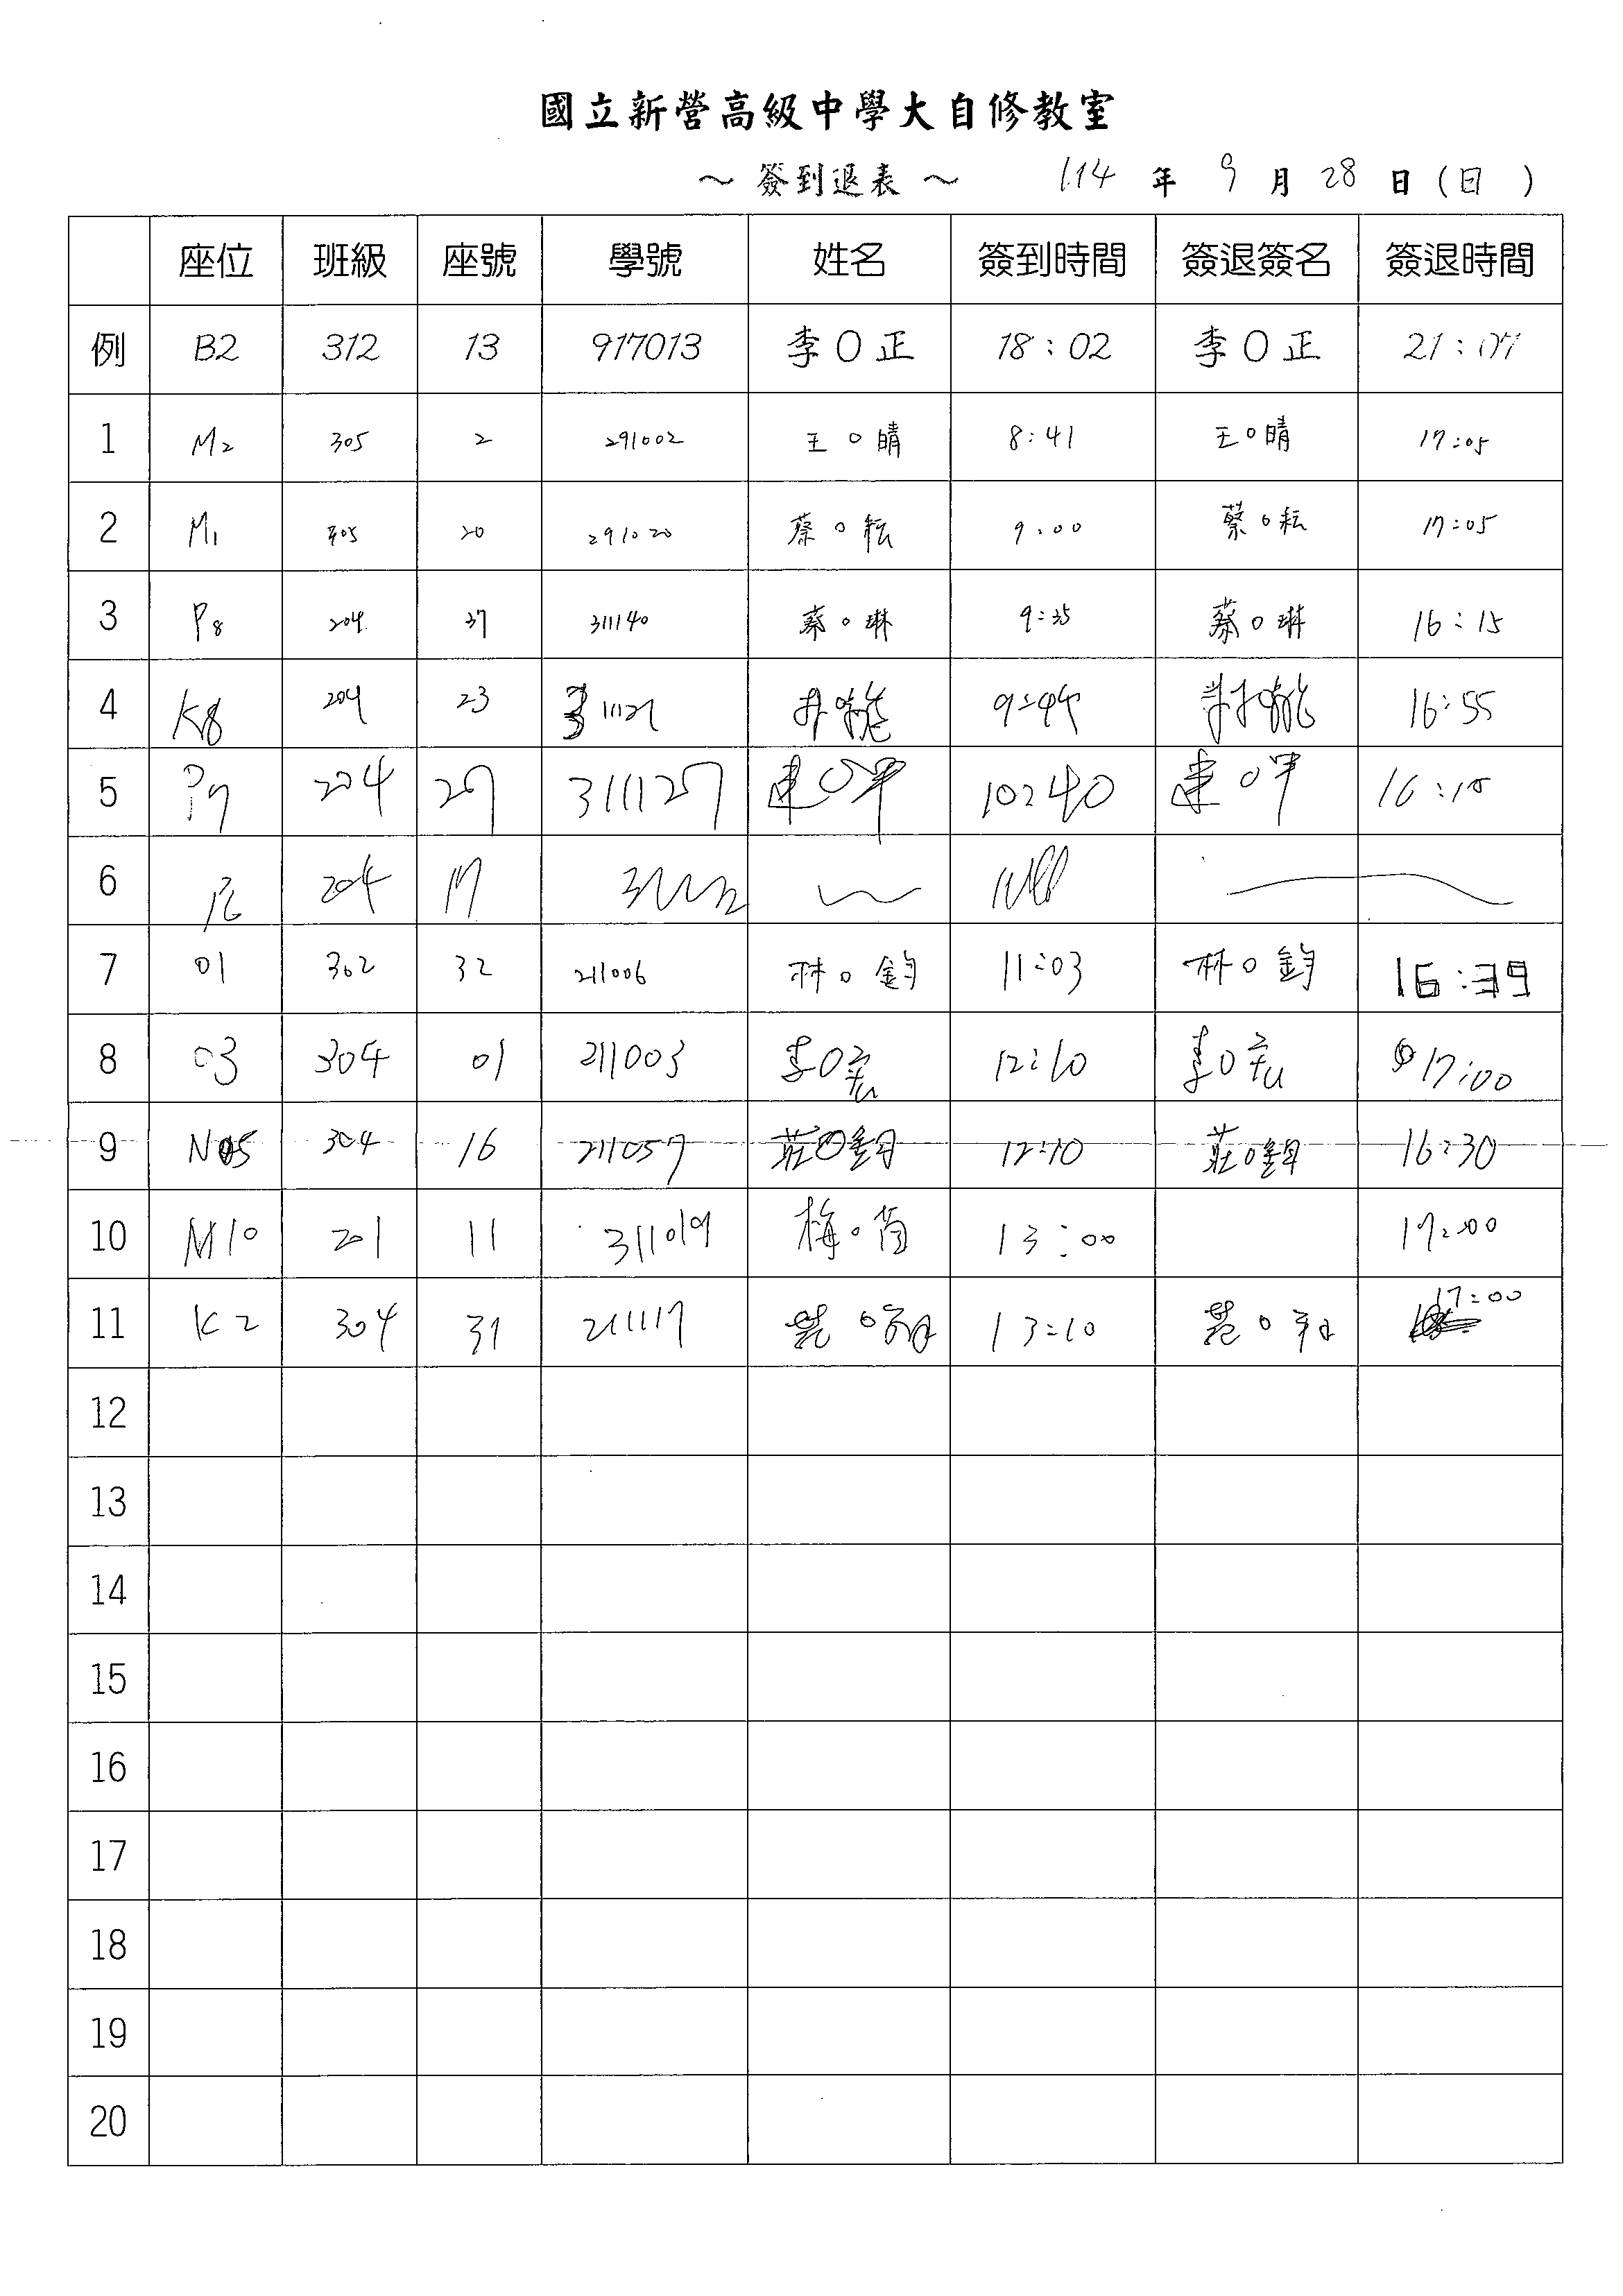 國立新營高級中學大自修教室
～簽到退表～ 114 年 9 月 28 日(日)
座位 班級 座號 學號 姓名 簽到時間 簽退簽名 簽退時間
例 B2 312 13 917013 李O正 18:02 李O正 21:07
1 M2 305 2 291002 王O晴 8:41 王O晴 17:05
2 M1 305 20 291020 蔡O耘 9:00 蔡O耘 17:05
3 P8 204 37 311140 蔡O琳 9:35 蔡O琳 16:15
4 K8 204 23 9:44 16:55
5 P7 204 27 311127 10:40 16:15
6 204 17
7 01 302 32 211006 林O鈞 11:03 林O鈞 16:39
8 03 304 01 211003 李O宏 12:10 李O宏 17:00
9 N05 304 16 211057 莊O鈞 12:10 莊O鈞 16:30
10 M10 201 11 311019 梅O筒 13:00 17:00
11 K2 304 31 211117 13:10 17:00
12
13
14
15
16
17
18
19
20